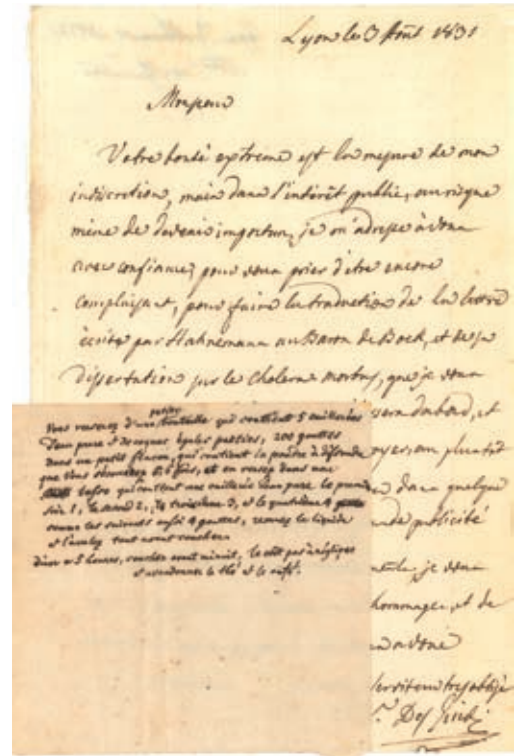 Lyon le 3 Août 1831
Monsieur
Votre bonté extreme est la mesure de mon
indiscretion, mais dans l'intérêt public, au risque
même de devenir importun, je m'adresse à vous
avec confiance, pour vous prier d'être encore
complaisant, pour faire la traduction de la lettre
écrite par Hahnemann au Baron de Bock, et de sa
dissertation sur le cholera morbus, que je vous
d'abord, et
plutot
dans quelque
publicité
je vous
hommages, et de
serviteur tres obligé
Des Guidi
Vous versez d'une petite bouteille qui contient 5 cuillerées
d'eau pure et de cognac 200 gouttes
dans un petit flacon, qui contient la poudre à dissoudre
que vous fois, et en versez dans une
tasse qui contient une cuillerée d'eau pure le premier
soir 1, le second 2, le troisième 3, et le quatrième 4
comme les suivants aussi 4 gouttes, remuez le liquide
et l'avalez tout avant coucher.
diner à 5 heures, coucher avant minuit,
et abandonner le thé et le café.